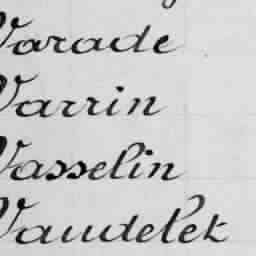 Varade
Varrin
Vasselin
Vaudelet